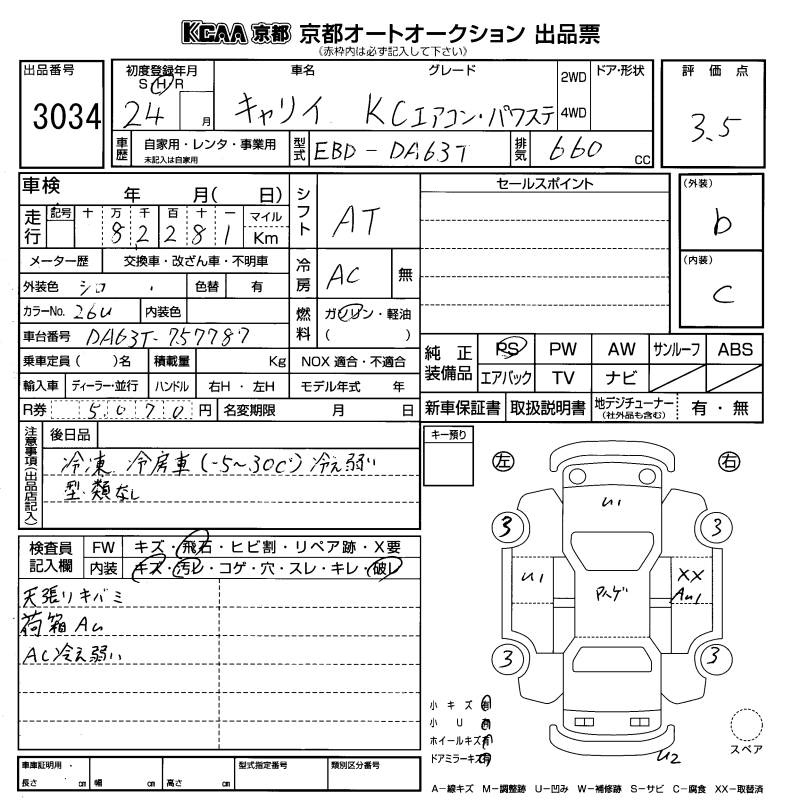 KCAA 京都 京都オートオークション 出品票
(赤枠内は必ず記入して下さい)
出品番号 3034
初度登録年月 S H R 24 月
車名 キャリイ
グレード KCエアコン・パワステ
2WD 4WD
ドア・形状
評価点 3.5
車歴 自家用・レンタ・事業用 未記入は自家用
型式 EBD-DA63T
排気 660 cc
車検 年 月( 日)
シフト AT
セールスポイント
(外装) b
走行 記号 十 万 千 百 十 一 マイル Km
8 2 2 8 1
メーター歴 交換車・改ざん車・不明車
冷房 AC 無
(内装) C
外装色 シロ 色替 有
カラーNo. 26U 内装色
燃料 ガソリン・軽油 ( )
車台番号 DA63T-757787
乗車定員( )名 積載量 Kg NOX 適合・不適合
純正装備品 PS PW AW サンルーフ ABS
エアバック TV ナビ
輸入車 ディーラー・並行 ハンドル 右H・左H モデル年式 年
R券 5070円 名変期限 月 日
新車保証書 取扱説明書 地デジチューナー (社外品も含む) 有・無
注意事項(出品店記入) 後日品
冷凍 冷房車(-5~30C°)冷え弱い
型.類なし
キー預り
左 右
検査員記入欄 FW キズ・飛石・ヒビ割・リペア跡・X要
内装 キズ・汚レ・コゲ・穴・スレ・キレ・破レ
天張りキバミ
荷箱AU
AC冷え弱い
U1
3 3
U1 XX
AU1
Pハゲ
3 3
U2
小キズ 有
小U 有
ホイールキズ 有
ドアミラーキズ 有
スペア
車庫証明用・ 長さ cm 幅 cm 高さ cm
型式指定番号 類別区分番号
A-線キズ M-調整跡 U-凹み W-補修跡 S-サビ C-腐食 XX-取替済